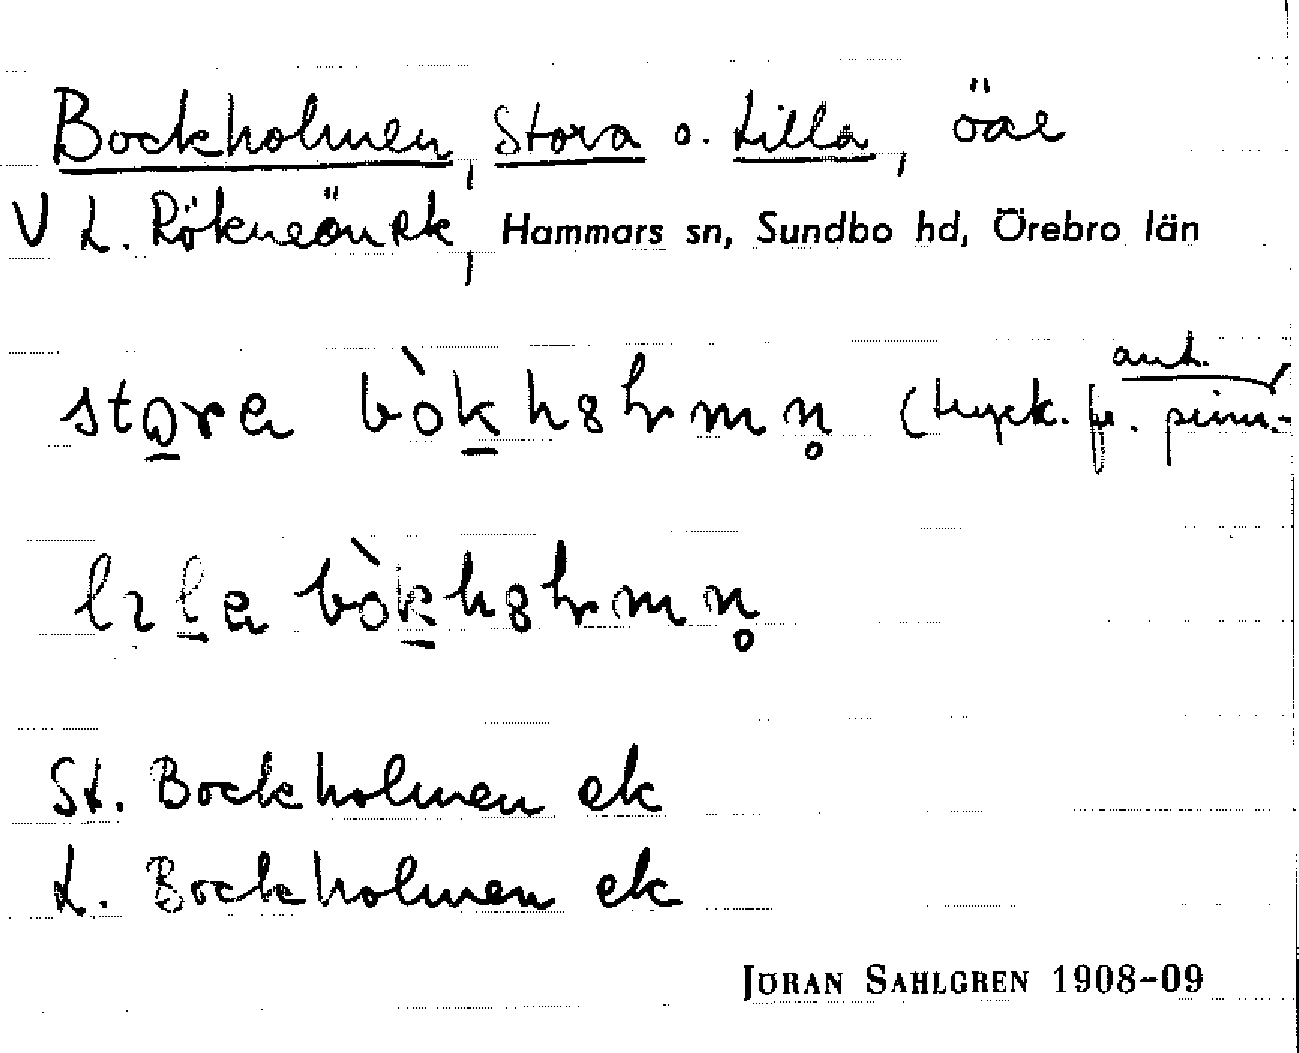 Bockholmen, Stora o. Lilla, öar
V L. Röknöön ek, Hammars sn, Sundbo hd, Örebro län
ant.
stora bòkh8lmn̥ (tryck. fr.
lıla bòkh8lmn̥
St. Bockholmen ek
L. Bockholmen ek
JÖRAN SAHLGREN 1908-09